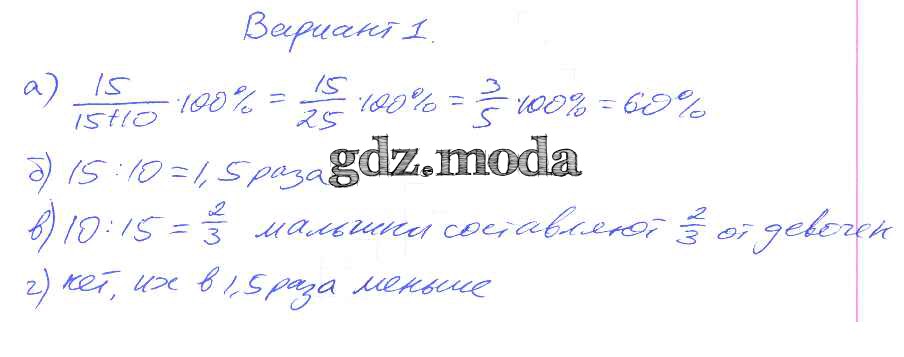 Вариант 1.
а) 15/(15+10) · 100% = 15/25 · 100% = 3/5 · 100% = 60%
б) 15 : 10 = 1,5 раза
gdz.moda
в) 10 : 15 = 2/3 малышки составляют 2/3 от девочек
г) нет, их в 1,5 раза меньше